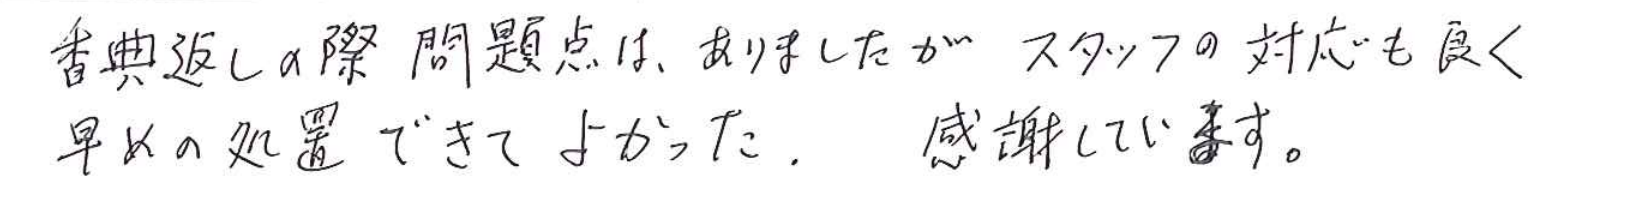 香典返しの際 問題点は、ありましたが スタッフの対応も良く
早めの処置できてよかった. 感謝しています。